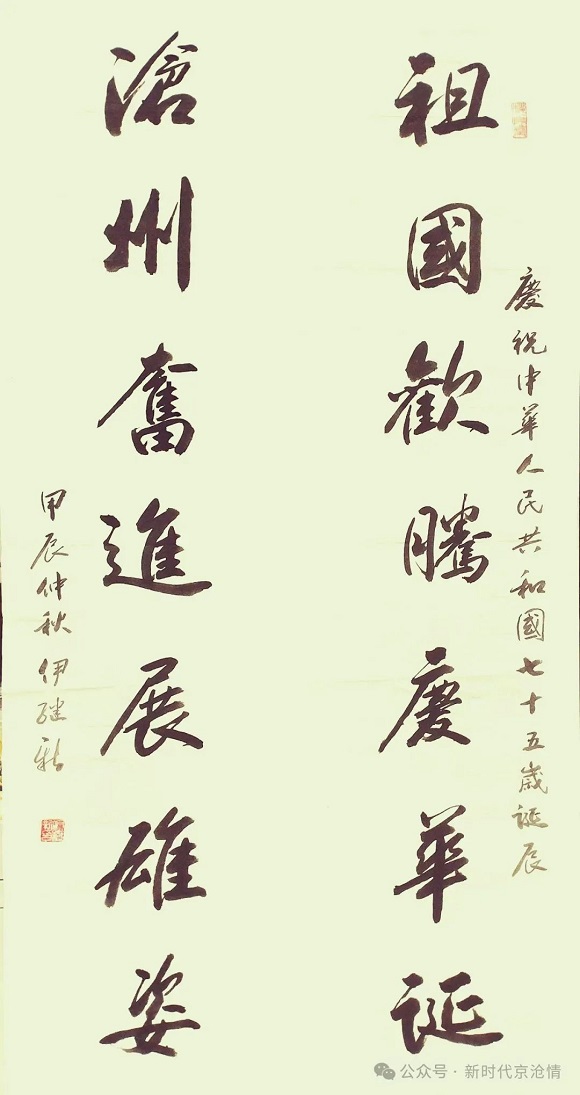 慶祝中華人民共和國七十五歲誕辰
祖國歡騰慶華誕
滄州奮進展雄姿
甲辰仲秋伊继新
公众号·新时代京沧情